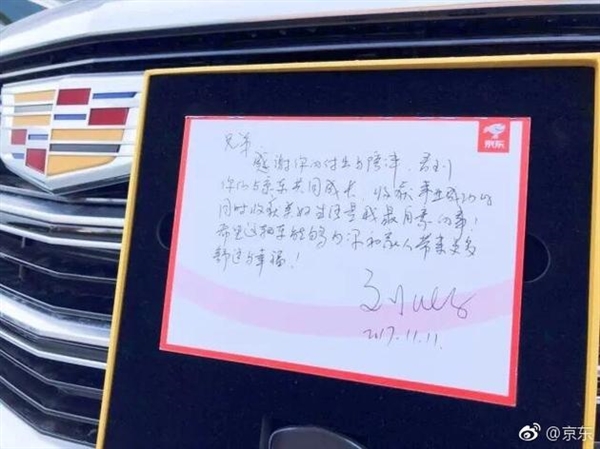 京东
兄弟:
感谢你的付出与拼搏,看到
你们与京东共同成长,收获事业成功的
同时收获美好生活是我最开心的事!
希望这辆车能够为你和家人带来更多
舒适与幸福!
2017.11.11.
@京东